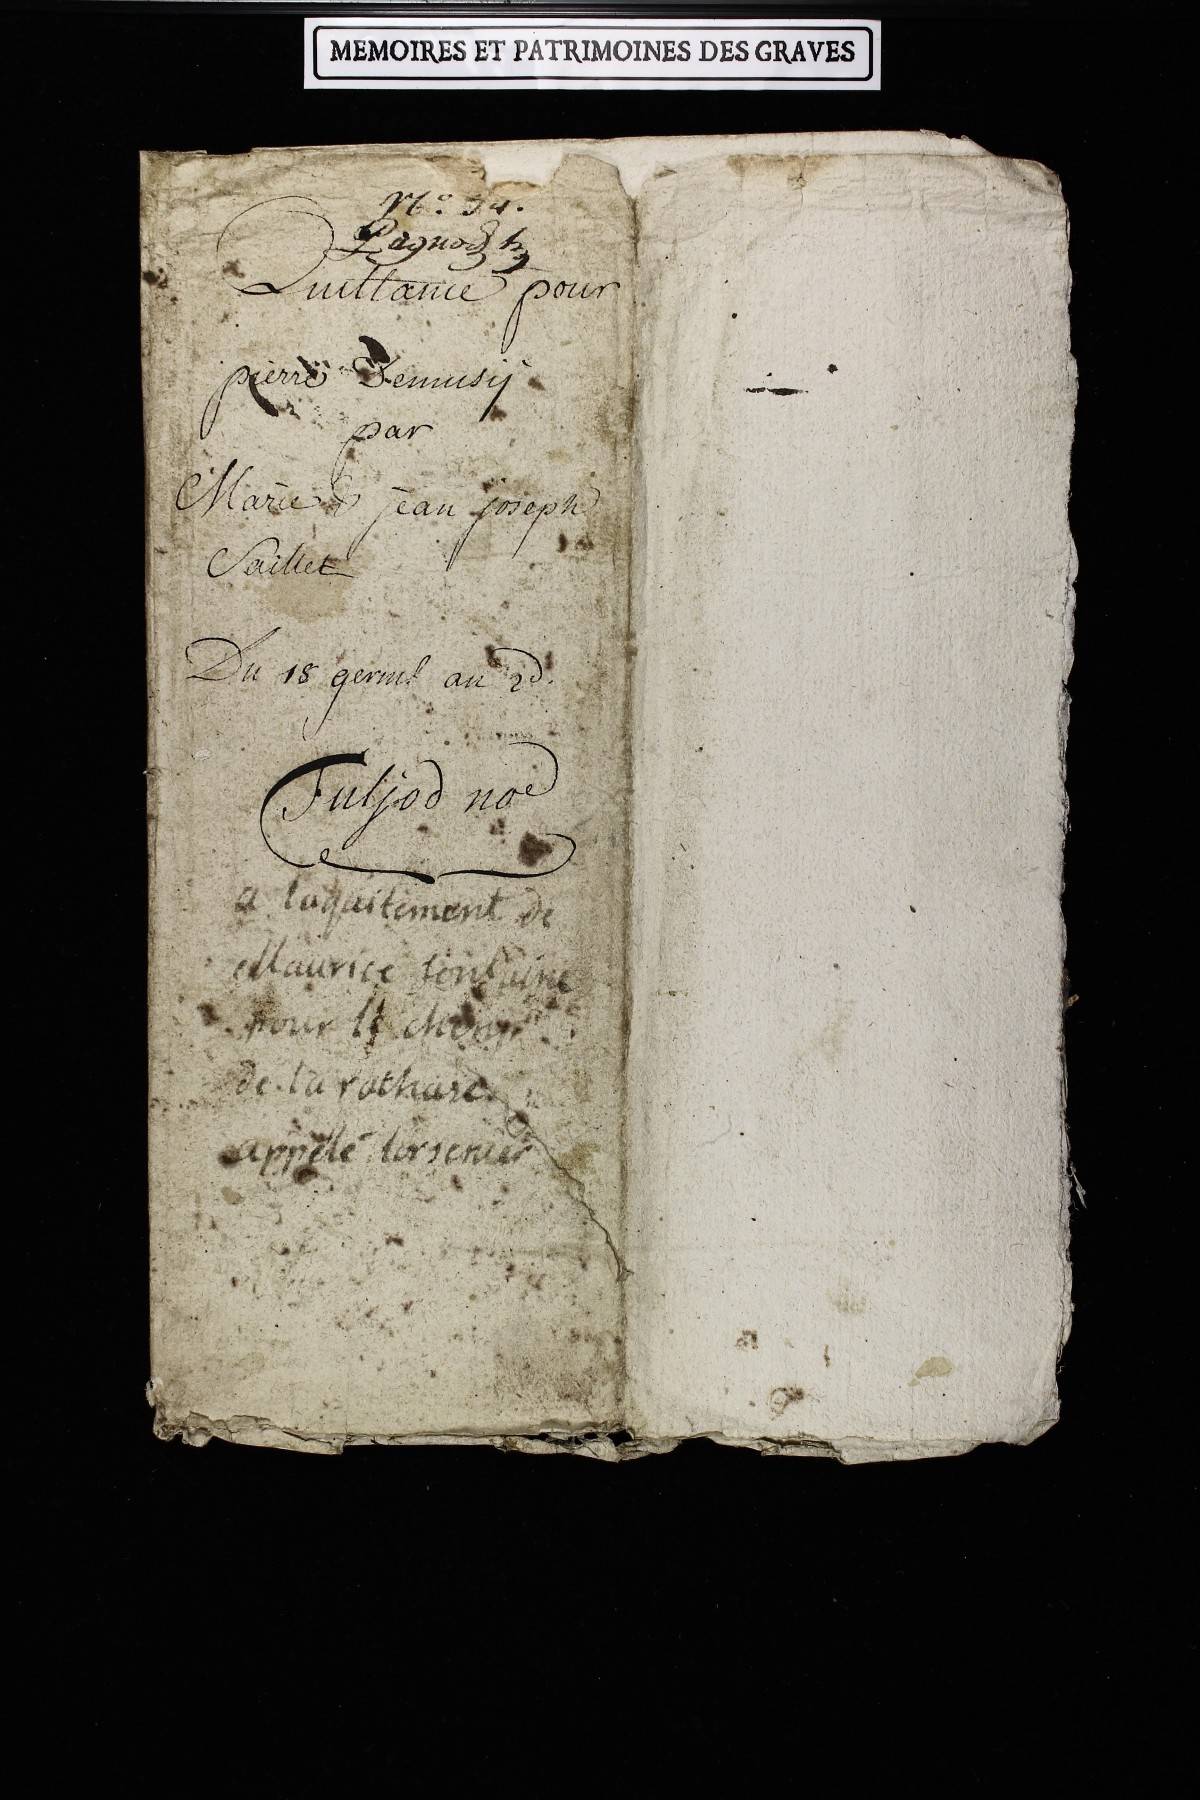 MEMOIRES ET PATRIMOINES DES GRAVES
N.o 34.
Quittance pour
pierre Demusij
par
Marie & jean joseph
Saillet
Du 18 germl an 2d.
Fuljod noe
a laquitement de
Maurice fontaine
pour le champ
de la rothase
appelé